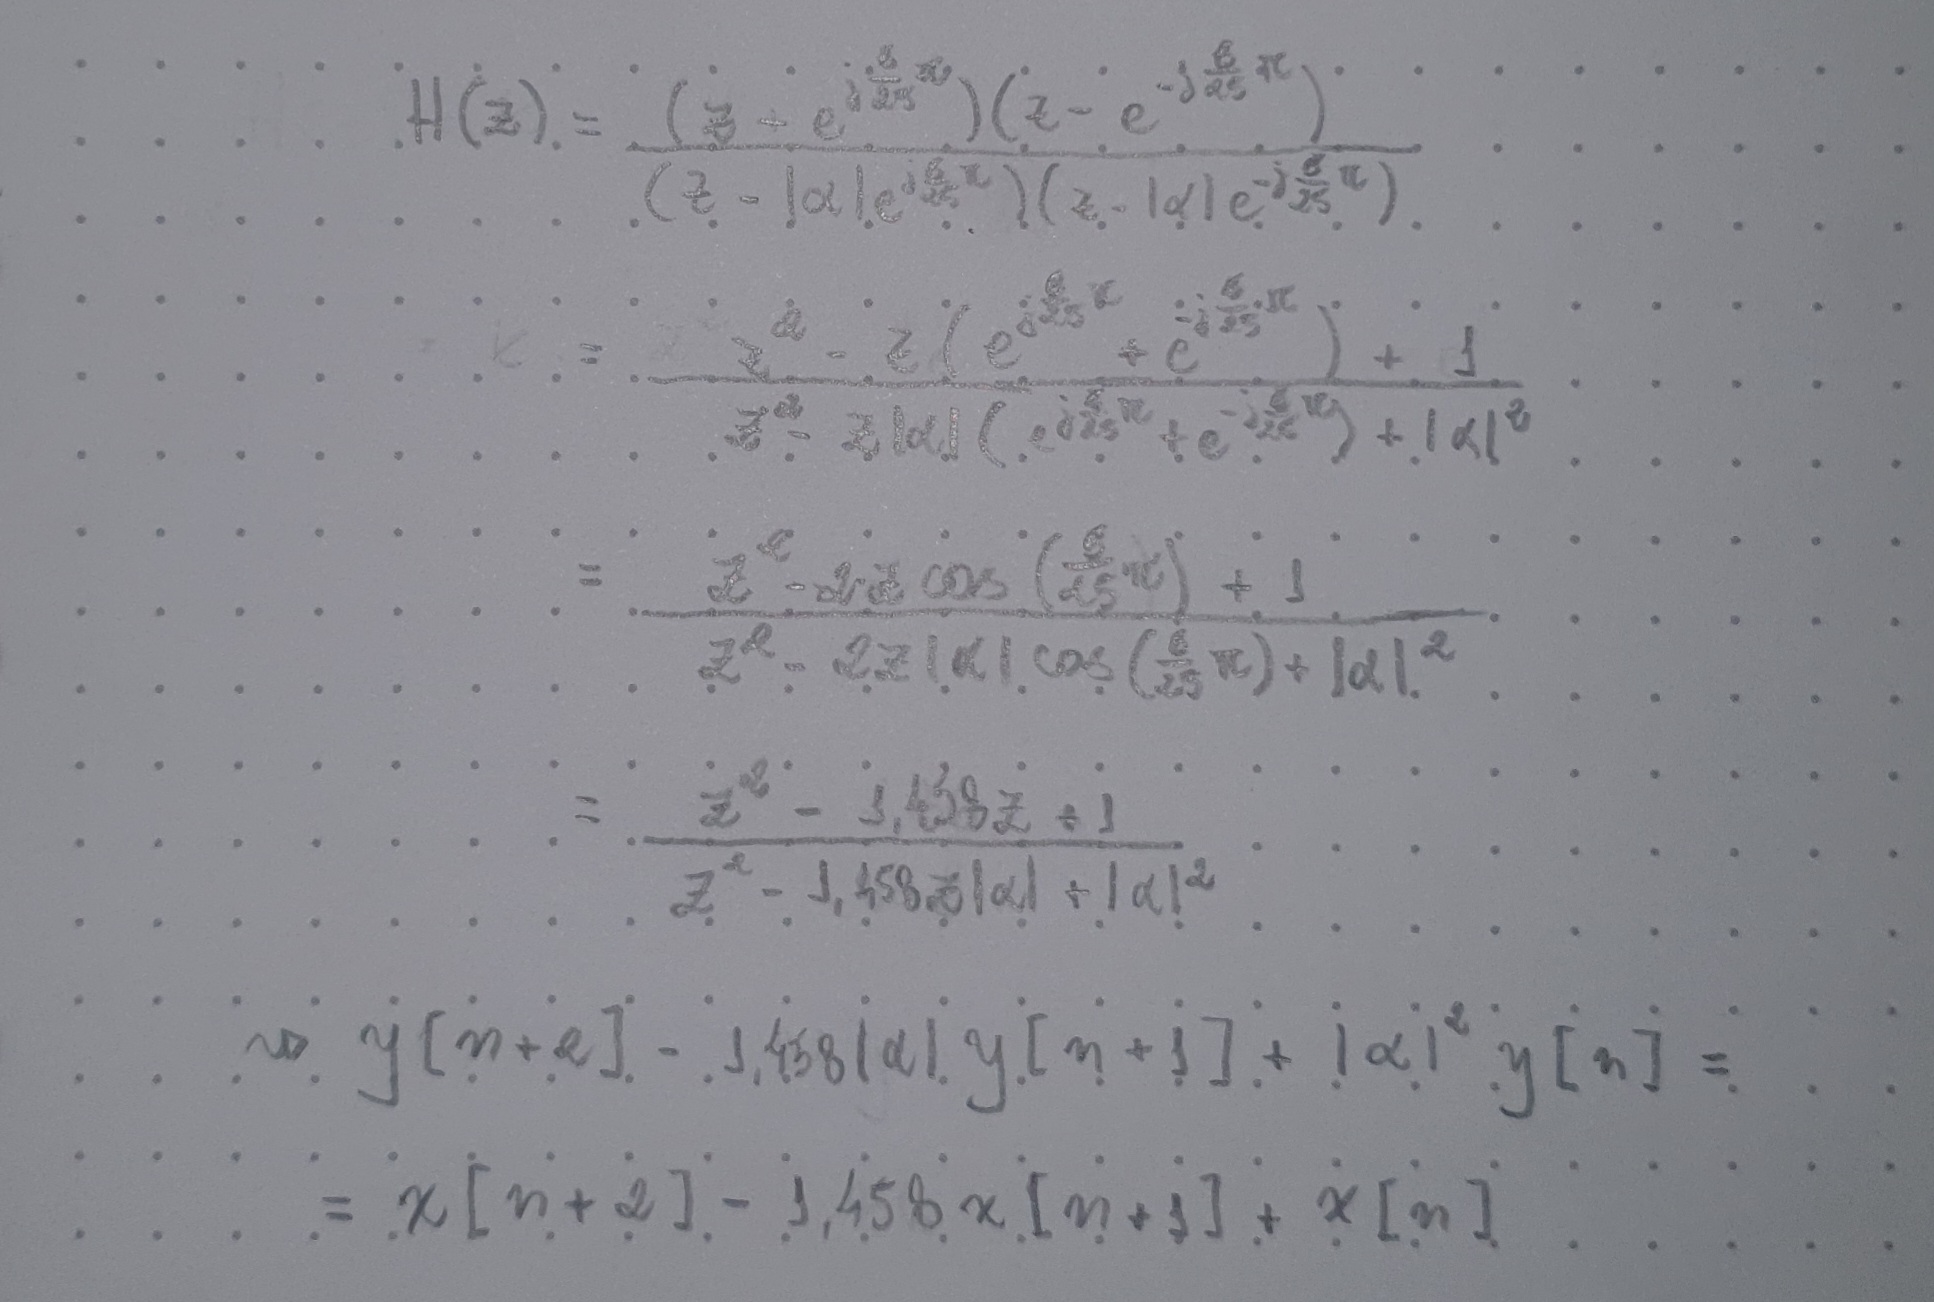 H(z) = \frac{(z - e^{j\frac{6}{25}π})(z - e^{-j\frac{6}{25}π})}{(z - |α|e^{j\frac{6}{25}π})(z - |α|e^{-j\frac{6}{25}π})}
= \frac{z^2 - z(e^{j\frac{6}{25}π} + e^{-j\frac{6}{25}π}) + 1}{z^2 - z|α|(e^{j\frac{6}{25}π} + e^{-j\frac{6}{25}π}) + |α|^2}
= \frac{z^2 - 2z cos(\frac{6}{25}π) + 1}{z^2 - 2z|α| cos(\frac{6}{25}π) + |α|^2}
= \frac{z^2 - 1,458z + 1}{z^2 - 1,458z|α| + |α|^2}
⇝ y[n+2] - 1,458|α| y[n+1] + |α|^2 y[n] =
= x[n+2] - 1,458 x[n+1] + x[n]